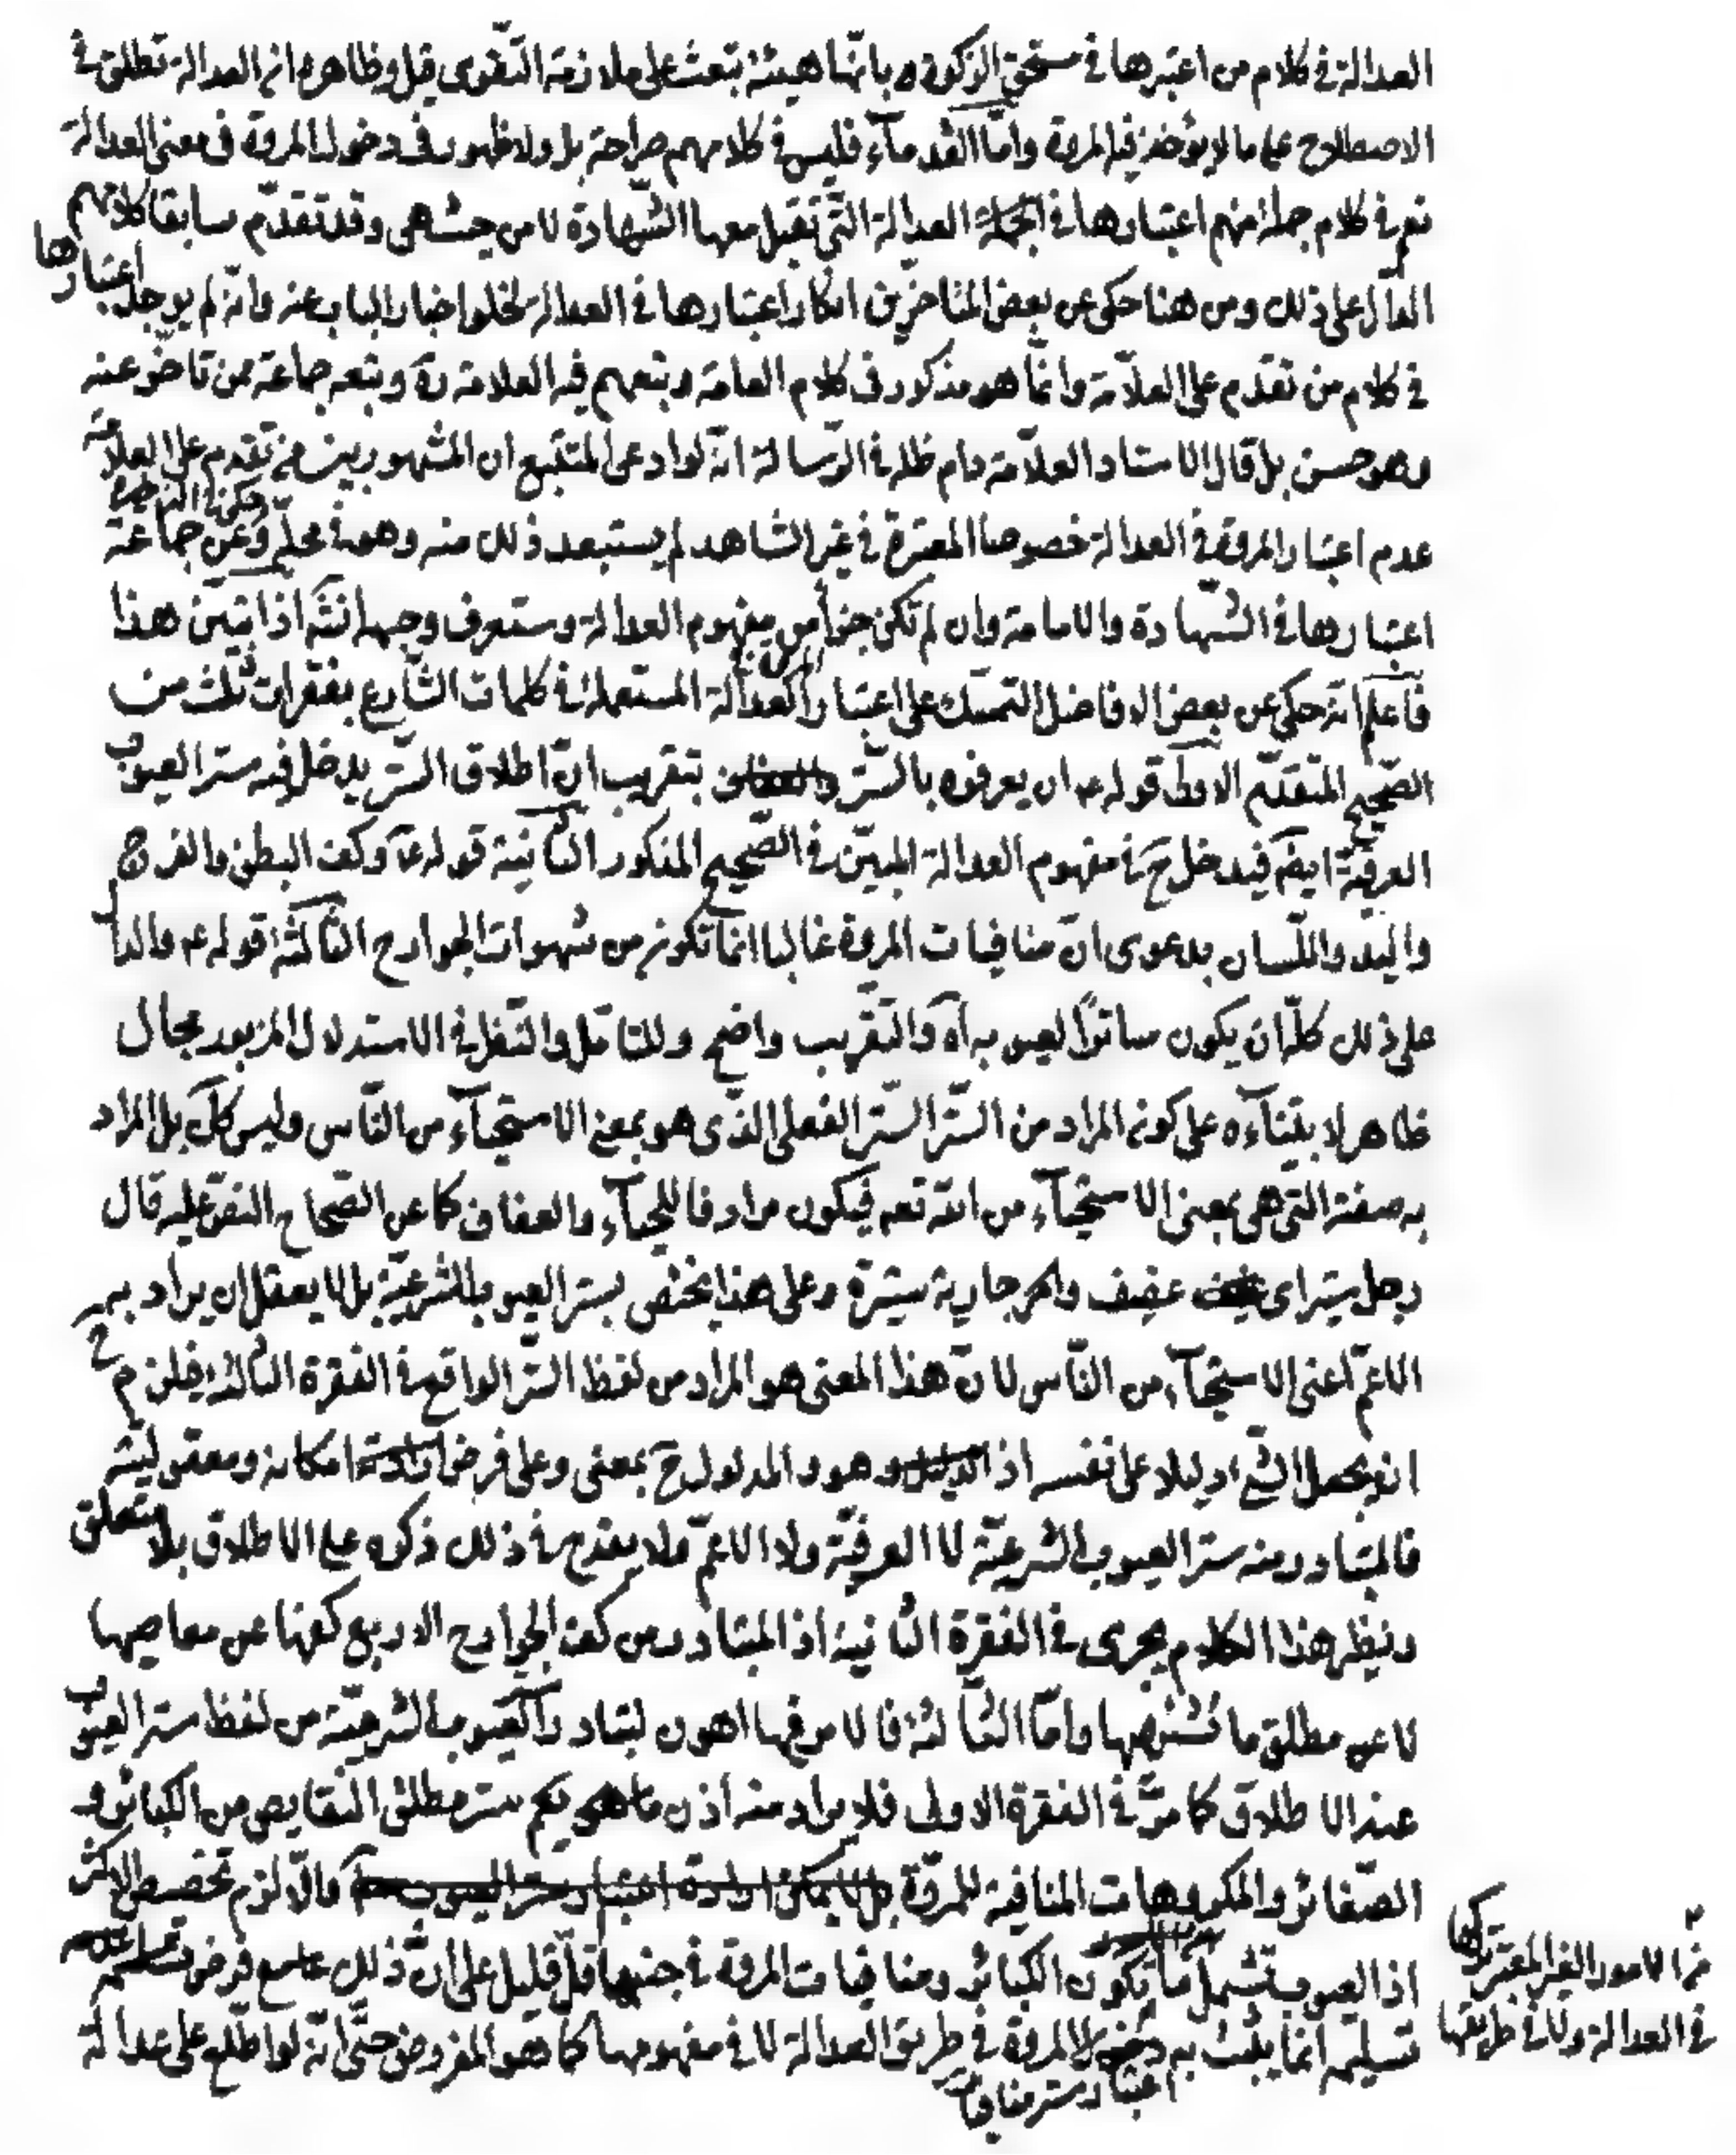 العدالة في كلام من اعتبرها في مستحق الزكوة بانها هيئة تبعث على ملازمة التقوى قيل وظاهره ان العدالة تطلق في
الاصطلاح على ما لا يؤخذ فيه المروة وامّا القدمآء فليس في كلامهم صراحة بل ولا ظهور في دخول المروة في معنى العدالة
نعم في كلام جملة منهم اعتبارها في الجملة العدالة التي تقبل معها الشهادة لا من حيث هي وقد تقدّم سابقا كلامهم
الدال على ذلك ومن هنا حكى عن بعض المتاخرين انكار اعتبارها في العدالة لخلو اخبار الباب عنه وانه لم يوجد اعتبارها
في كلام من تقدم على العلّامة وانّما هو مذكور في كلام العامة وتبعهم فيه العلامة ره وتبعه جماعة ممن تاخّر عنه
وهو حسن بل قال الاستاد العلّامة دام ظله في الرّسالة انّه لو ادعى المتتبع ان المشهور بين من تقدم على العلامة
عدم اعتبار المروة في العدالة خصوصا المعتبرة في غير الشاهد لم يستبعد ذلك منه وهو في محلّه وعن جماعة
اعتبارها في الشهادة والامامة وان لم تكن جزأ من مفهوم العدالة وستعرف وجهه انش اذا تبيّن هذا
فاعلم انه حكى عن بعض الافاضل التمسك على اعتبار المروة في العدالة المستعملة في كلمات الشّارع بفقرات ثلث من
الصّحيح المتقدّم الاولى قوله ع ان يعرفوه بالستر والعفاف بتقريب انّ اطلاق الستر يدخل فيه ستر العيوب
العرفيّة ايضا فيدخل ح في مفهوم العدالة المبيّن في الصّحيح المذكور الثّانية قوله ع وكف البطن والفرج
واليد واللّسان بدعوى انّ منافيات المروة غالبا انّما تكون من شهوات الجوارح الثّالثة قوله ع والدال
على ذلك كلّه ان يكون ساتراً لعيوبه اه والتقريب واضح وللتامّل والنّظر في الاستدلال المزبور مجال
ظاهر لابتنآءه على كون المراد من السّتر السّتر الفعلي الذي هو بمعنى الاستحيآء من النّاس وليس كك بل المراد
به صفته التي هي بمعنى الاستحيآء من الله تعم فيكون مرادفا للحيآء والعفاف كما عن الصّحاح النصّ عليه قال
رجل ستير اي عفيف والجارية ستيرة وعلى هذا يختصّ بستر العيوب الشرعيّة بل لا يعقل ان يراد به
الاعمّ اعنى الاستحيآء من النّاس لانّ هذا المعنى هو المراد من لفظ السّتر الواقع في الفقرة الثالثة فيلزم ح
ان يجعل الشيء دليلا على نفسه اذ الدليل وهو والمدلول ح بمعنى وعلى فرض امكانه ومعقوليته
فالمتبادر منه ستر العيوب الشرعيّة لا العرفيّة ولا الاعمّ ولا يقدح في ذلك ذكره على الاطلاق بلا متعلق
ونظير هذا الكلام يجرى في الفقرة الثّانية اذ المتبادر من كف الجوارح الاربع كفها عن معاصيها
لا عن مطلق ما تشتهيها وامّا الثّالثة فالامر فيها اهون لتبادر العيوب الشرعيّة من لفظ ستر العيوب
عند الاطلاق كما مرّ في الفقرة الاولى فلا يراد منه اذن ما يعم ستر مطلق النقايص من الكبائر و
الصّغائر والمكروهات المنافية للمروّة والّا لزم تخصيص الاكثر
اذ العيوب تشمل ما تكون الكبائر ومنافيات المروة في جنبها اقلّ قليل على انّ ذلك مع فرض
تسليمه انما يثبت به اعتبار ستر منافيات المروة في طريق العدالة لا في مفهومها كما هو المفروض حتّى انّه لو اطّلع على عدالة
من الامور الغير المعتبر تركها
في العدالة ولا في طريقها